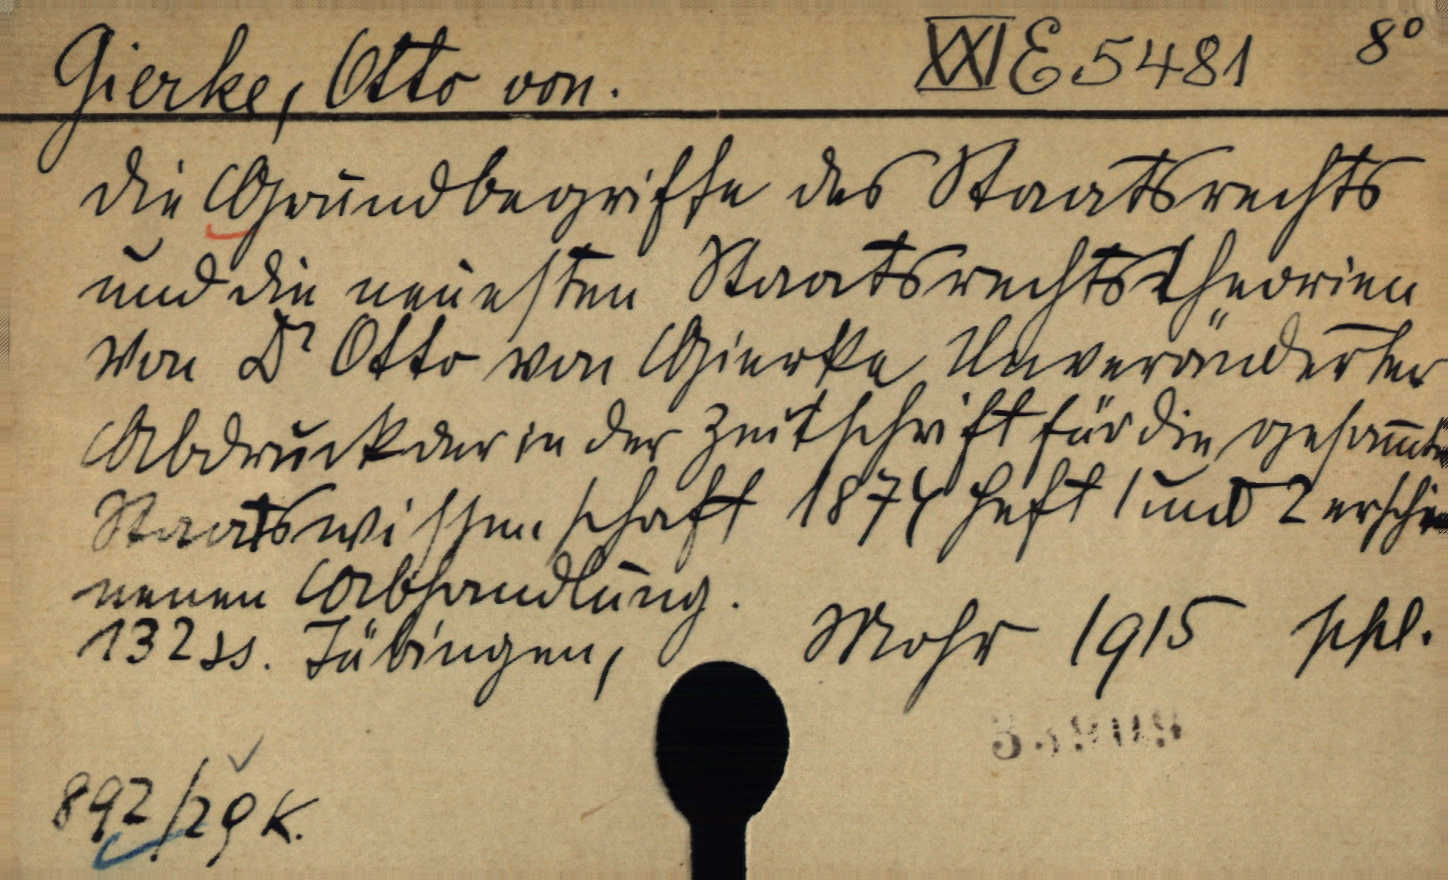 Gierke, Otto von. XXI E 5481 8°
Die Grundbegriffe des Staatsrechts
und die neuesten Staatsrechtstheorien
Von Dr Otto von Gierke Unveränderter
Abdruck der in der Zeitschrift für die gesam̅te
Staatswissenschaft 1874 Heft 1 und 2 erschie
nenen Abhandlung.
132 ss. Tübingen, Mohr 1915
892/29 K.